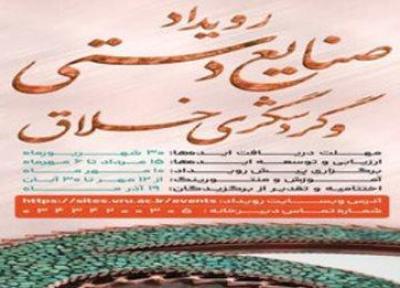 رویداد
صنایع دستی
و گردشگری خلاق
مهلت دریافت ایده‌ها: ۳۰ شهریورماه
ارزیابی و توسعه ایده‌ها: ۱۵ مرداد تا ۶ مهرماه
برگزاری پیش رویداد: ۱۰ مهر ماه
آموزش و منتورینگ: از ۱۲ مهر تا ۳۰ آبان
اختتامیه و تقدیر از برگزیدگان: ۱۹ آذر ماه
آدرس وبسایت رویداد: https://sites.vru.ac.ir/events
شماره تماس دبیرخانه: ۰۳۴۳۴۲۰۰۳۰۵